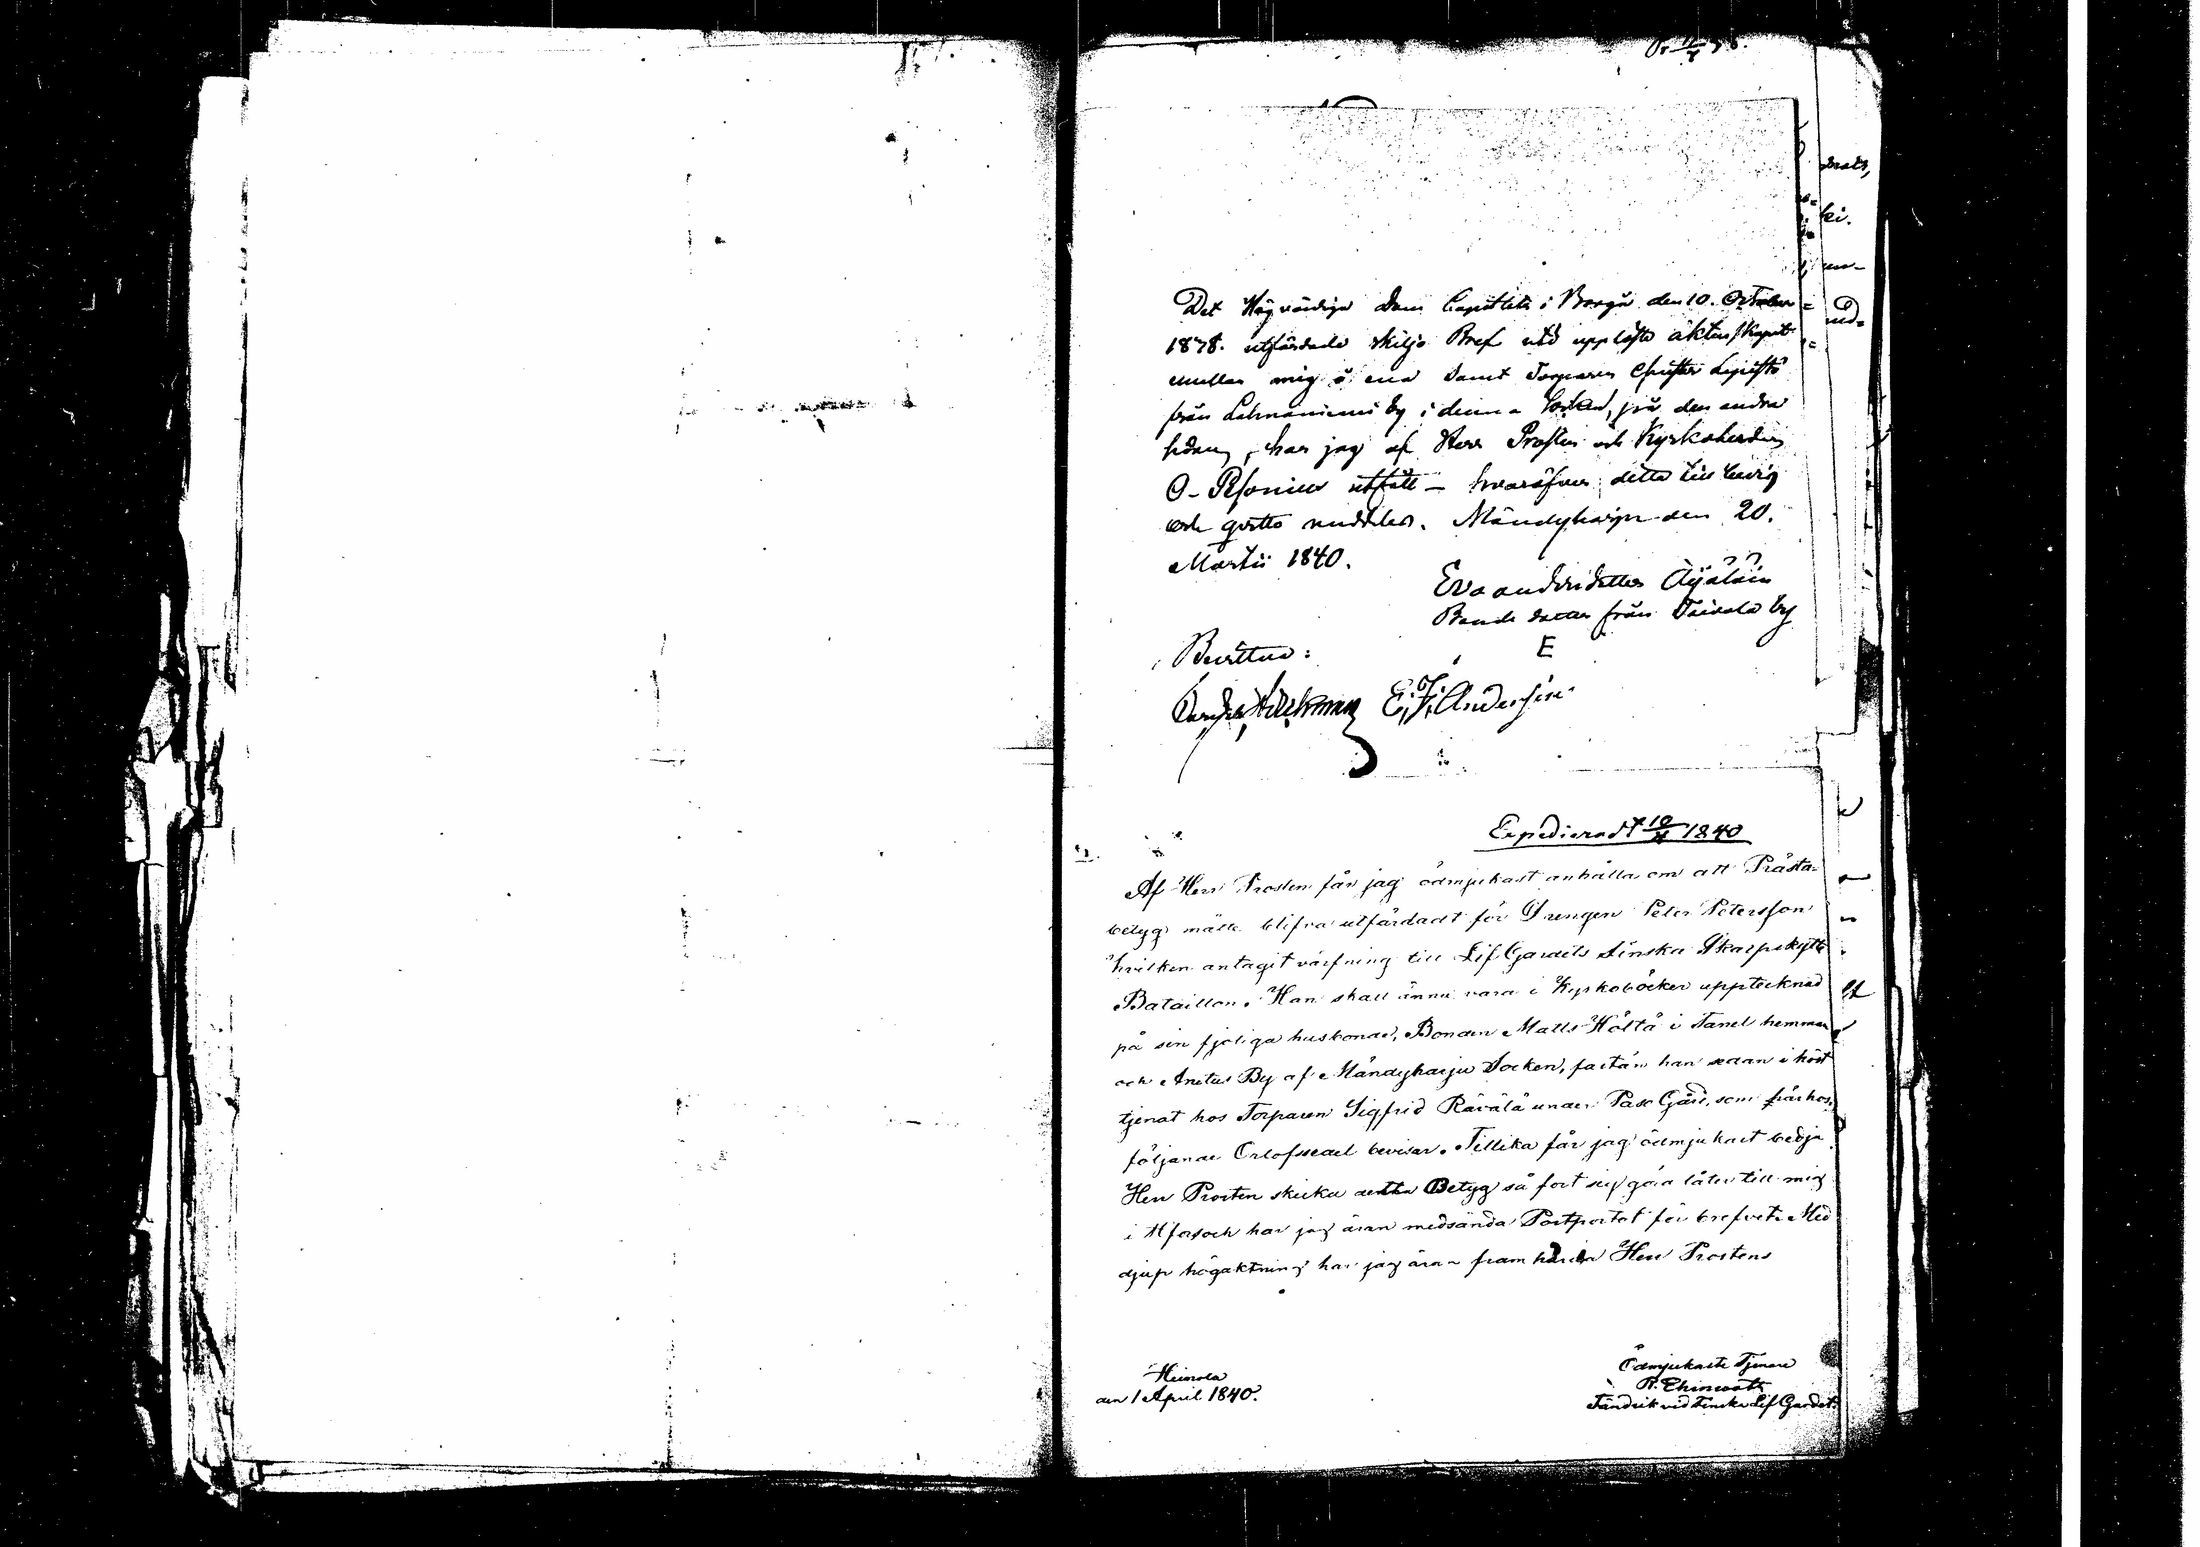 Det Högvördiga Dom Capitlets i Borgå den 10. October
1838. utfärdade skiljo Bref vid upplöste äktenskapet
emellan mig å ena samt Torparen Christer Lepistö
från Lahnaniemi by i denna Socken, på den andra
sidan, har jag af Herr Prosten och Kyrkoherden
O. utfått hvaröfver detta till bevis
och qvitto meddelas. Mändyharju den 20.
Martii 1840.
Eva andersdotter Äijäläin
Bonde dotter från Toivola by
E
Bevittna:
E. J. Andersin
Expedieradt 10/4 1840
Af Herr Prosten får jag ödmjukast anhålla om att Prästa-
betyg måtte blifva utfärdadt för Drengen Peter Petersson
hvilken antagit värfning till Lif Gardets Finska Skarpskytte
Bataillon. Han skall ännu vara i Kyrkoböcker upptecknad
på sin fjoliga husbonde, Bonden Matts Hölttä i Tanel hemman
och Anttu By af Mändyharju Socken, fastän han sedan i höst
tjenat hos Torparen Sigfrid Rävälä under Paso Gård, som härhos
följande Orlofssedel bevisar. Tillika får jag ödmjukast bedja
Herr Prosten skicka detta Betyg så fort sig göra låter till mig
i Hfors och har jag äran medsända Postportot för brefvet. Med
djup högaktning har jag äran framhärda Herr Prostens
Ödmjukaste Tjenare
R. Ehrnrooth
Fändrik vid Finska Lif Gardet.
Heinola
den 1 April 1840.